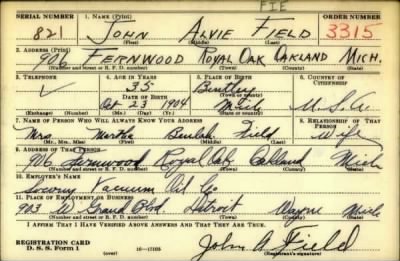 FIE
SERIAL NUMBER 1. NAME (Print) ORDER NUMBER
821 JOHN ALVIE FIELD 3315
(First) (Middle) (Last)
2. ADDRESS (Print)
906 FERNWOOD ROYAL OAK OAKLAND MICH.
(Number and street or R. F. D. number) (Town) (County) (State)
3. TELEPHONE 4. AGE IN YEARS 5. PLACE OF BIRTH 6. COUNTRY OF CITIZENSHIP
35 Bentley
DATE OF BIRTH
Oct 23 1904 Mich U.S.A.
(Exchange) (Number) (Mo.) (Day) (Yr.) (State or country)
7. NAME OF PERSON WHO WILL ALWAYS KNOW YOUR ADDRESS 8. RELATIONSHIP OF THAT PERSON
Mrs Martha Beulah Field Wife
(Mr., Mrs., Miss) (First) (Middle) (Last)
9. ADDRESS OF THAT PERSON
906 Fernwood Royal Oak Oakland Mich
(Number and street or R. F. D. number) (Town) (County) (State)
10. EMPLOYER'S NAME
Socony Vacuum Oil Co
11. PLACE OF EMPLOYMENT OR BUSINESS
903 W Grand Blvd. Detroit Wayne Mich
(Number and street or R. F. D. number) (Town) (County) (State)
I AFFIRM THAT I HAVE VERIFIED ABOVE ANSWERS AND THAT THEY ARE TRUE.
REGISTRATION CARD
D. S. S. Form 1 (over) John A Field
(Registrant's signature)